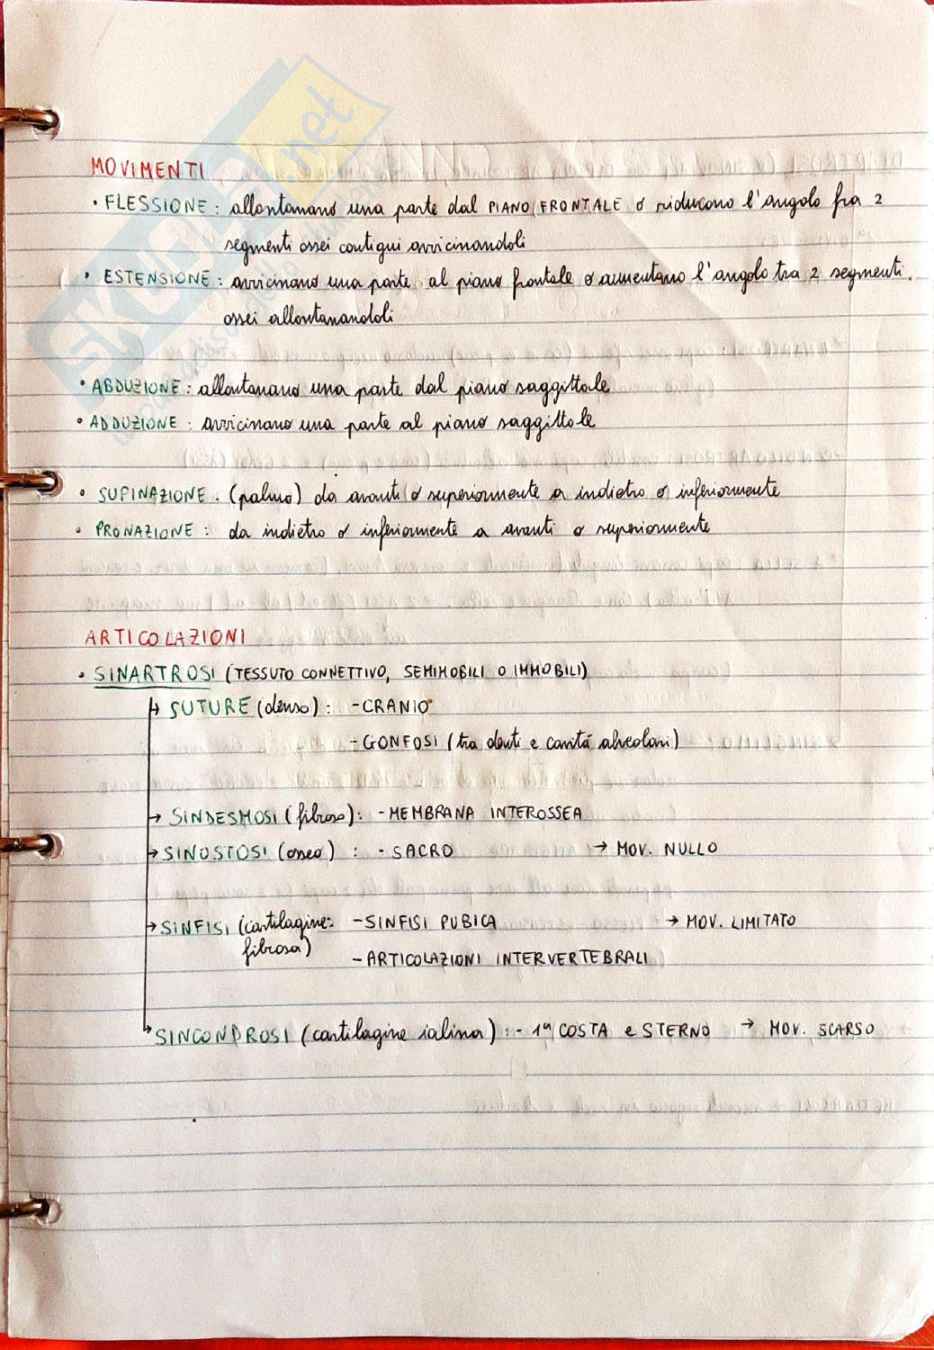 SKUOLA.net
MOVIMENTI
• FLESSIONE: allontanano una parte dal PIANO FRONTALE o riducono l'angolo fra 2
segmenti ossei contigui avvicinandoli
• ESTENSIONE: avvicinano una parte al piano frontale o aumentano l'angolo tra 2 segmenti
ossei allontanandoli
• ABDUZIONE: allontanano una parte dal piano saggittale
• ADDUZIONE: avvicinano una parte al piano saggittale
• SUPINAZIONE. (palmo) da avanti o superiormente a indietro o inferiormente
• PRONAZIONE: da indietro o inferiormente a avanti o superiormente
ARTICOLAZIONI
• SINARTROSI (TESSUTO CONNETTIVO, SEMIMOBILI O IMMOBILI)
→ SUTURE (denso): - CRANIO
- GONFOSI (tra denti e cavità alveolari)
→ SINDESMOSI (fibroso): - MEMBRANA INTEROSSEA
→ SINOSTOSI (osseo) : - SACRO → MOV. NULLO
→ SINFISI (cartilagine: - SINFISI PUBICA → MOV. LIMITATO
fibrosa) - ARTICOLAZIONI INTERVERTEBRALI
→ SINCONDROSI (cartilagine ialina): - 1ª COSTA e STERNO → MOV. SCARSO